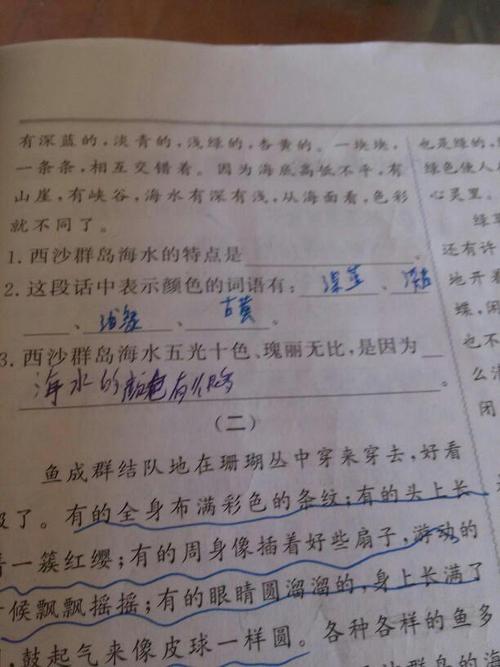 有深蓝的，淡青的，浅绿的，杏黄的。一块块，
一条条，相互交错着。因为海底高低不平，有
山崖，有峡谷，海水有深有浅，从海面看，色彩
就不同了。
1.西沙群岛海水的特点是
2.这段话中表示颜色的词语有：深蓝、
、浅绿、古黄。
3.西沙群岛海水五光十色、瑰丽无比，是因为
海水的颜色有
(二)
鱼成群结队地在珊瑚丛中穿来穿去，好看
极了。有的全身布满彩色的条纹；有的头上长
着一簇红缨；有的周身像插着好些扇子，游动的
时候飘飘摇摇；有的眼睛圆溜溜的，身上长满了
鼓起气来像皮球一样圆。各种各样的鱼多
也是绿的，
绿色使人
心灵里。
绿
还有许
地开着
蝶，闲
也不
么清
闭